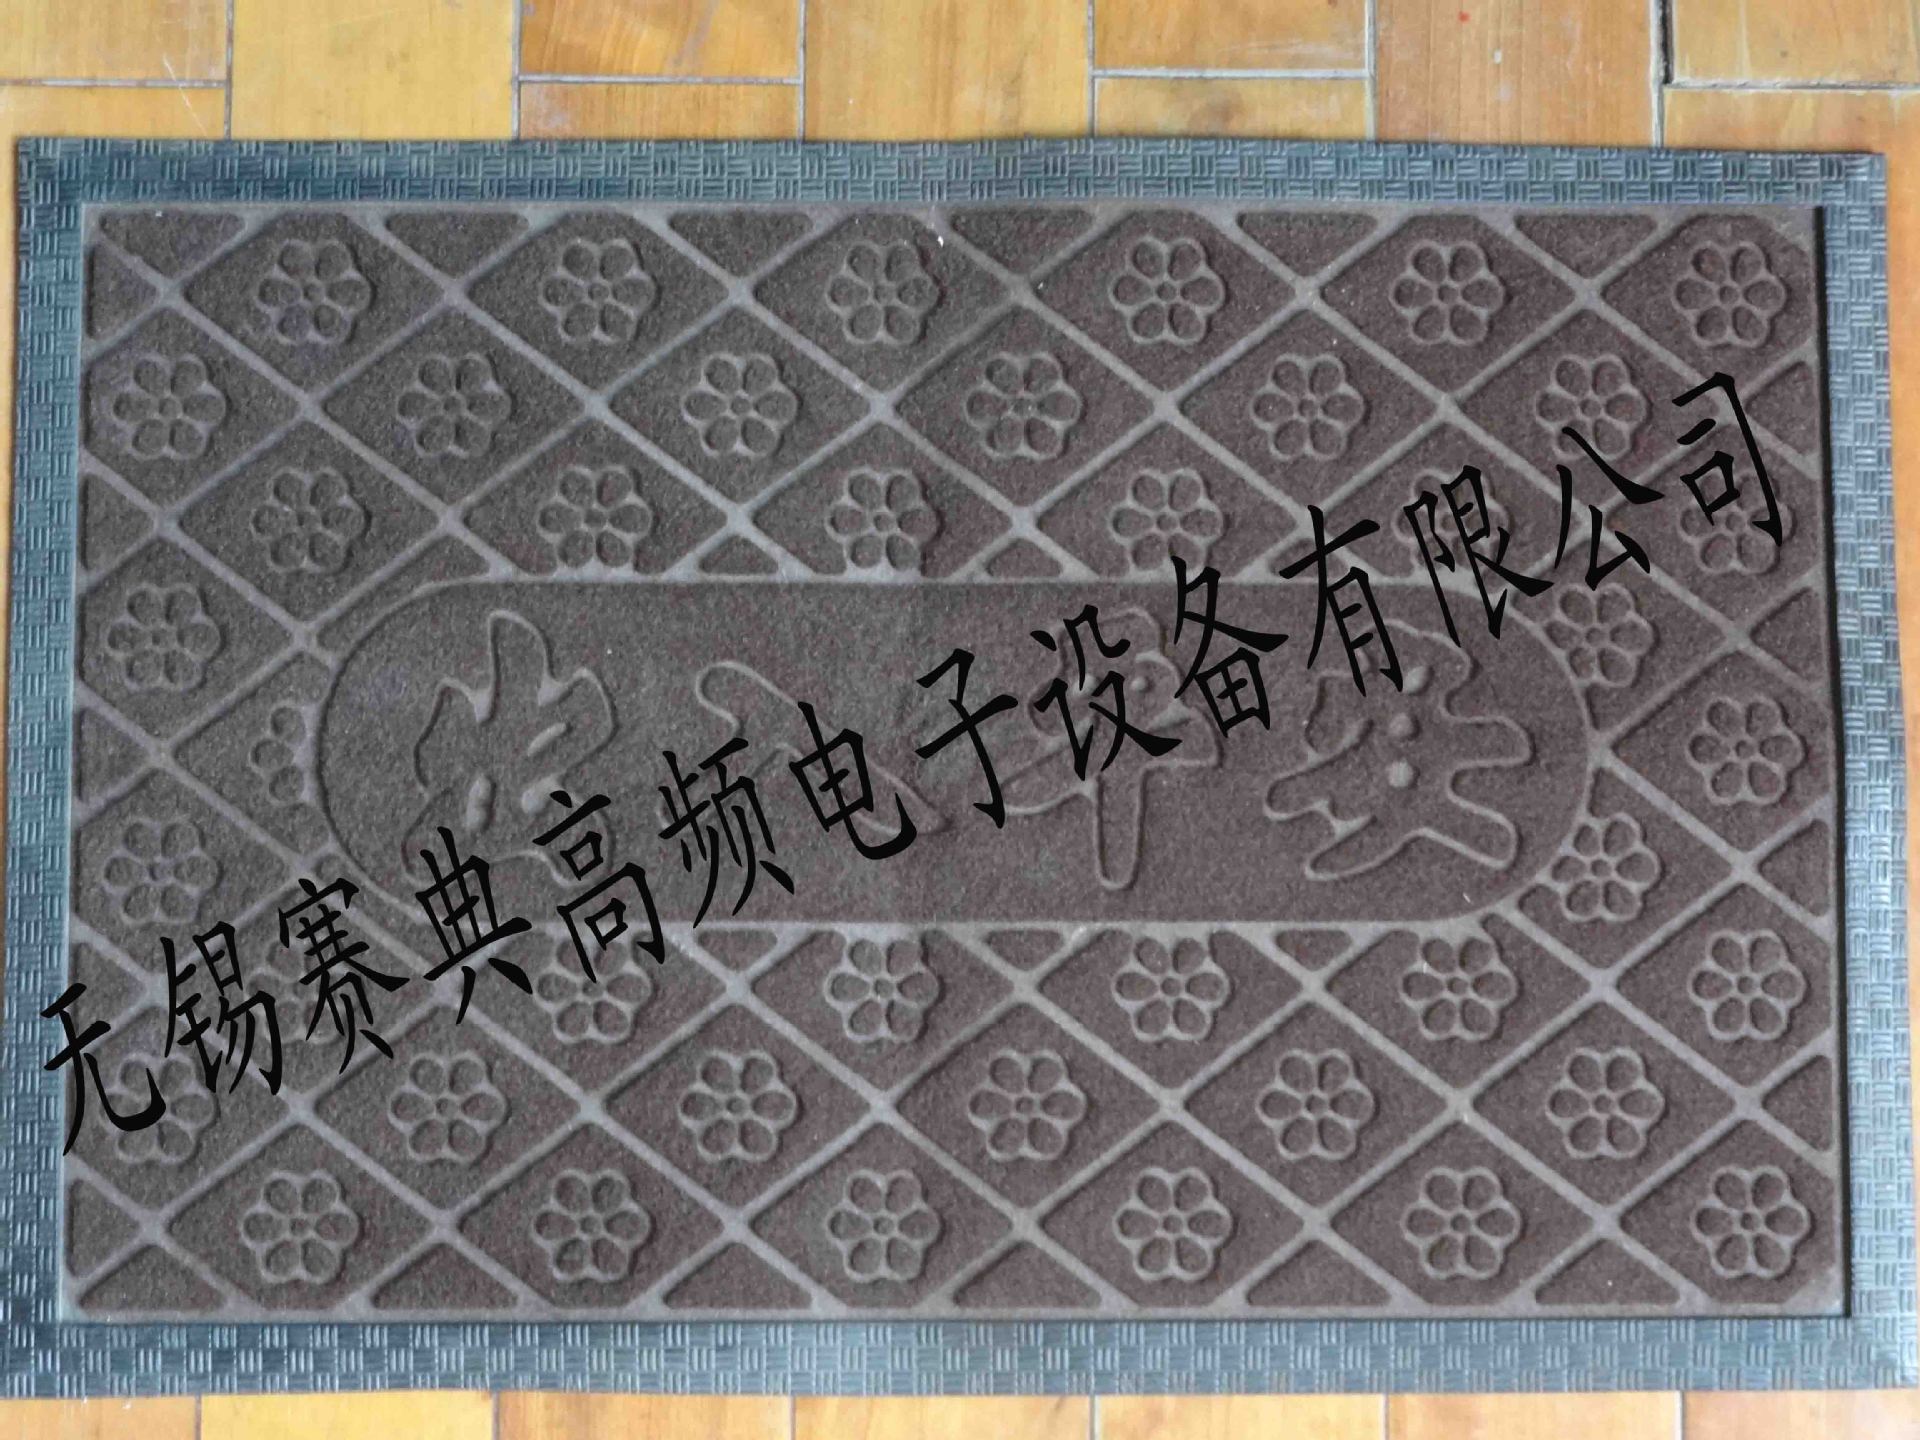 无锡赛典高频电子设备有限公司
出入平安